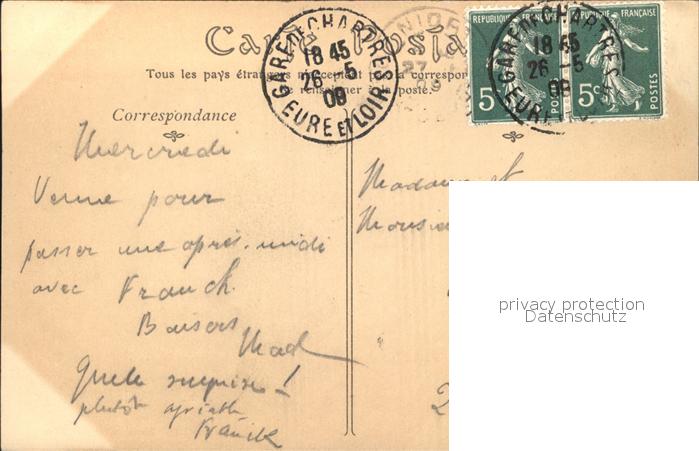 Carte Postale
RÉPUBLIQUE FRANÇAISE
5c POSTES
RÉPUBLIQUE FRANÇAISE
5c POSTES
GARE DE CHARTRES
18 45
26 -5
09
EURE ET LOIR
GARE DE CHARTRES
18 45
26 -5
09
EURE
27
09
Tous les pays étrangers n'acceptent pas la correspon
se renseigner à la poste.
Correspondance
Mercredi
Venue pour
passer une après-midi
avec Franck.
Baisers
Mad
Quelle surprise !
plutôt
Madame et
Monsie
2
privacy protection
Datenschutz